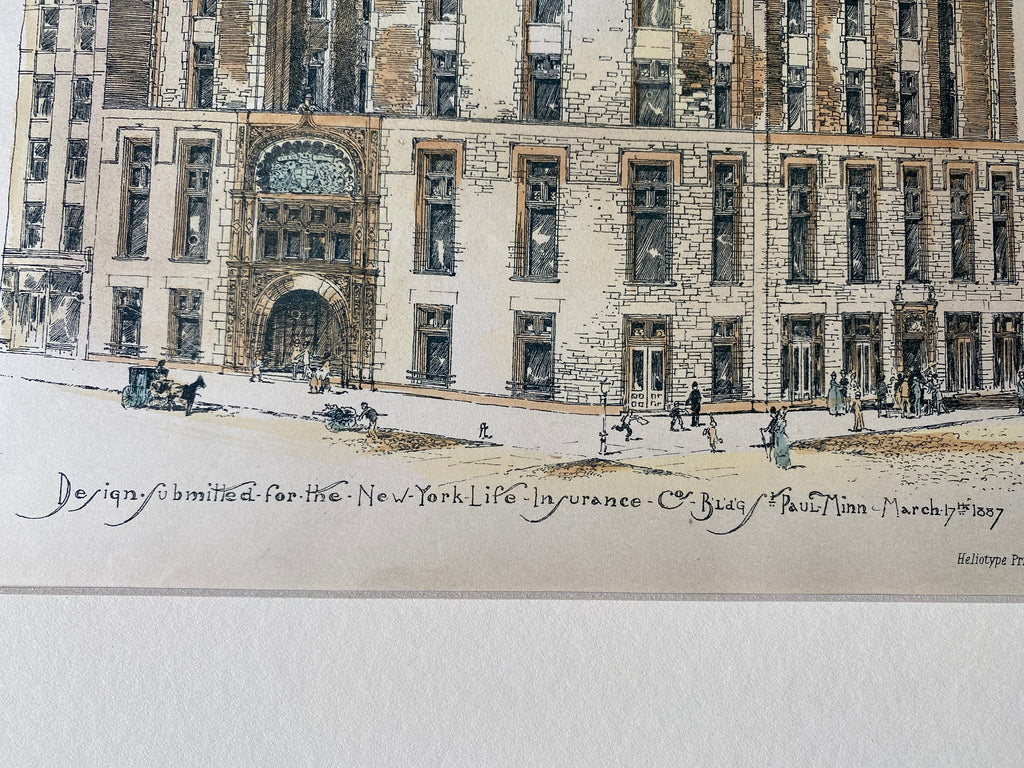 Design·submitted·for·the·New·York·Life·Insurance·Co's·Bldg St. Paul·Minn·March·17th 1887
Heliotype